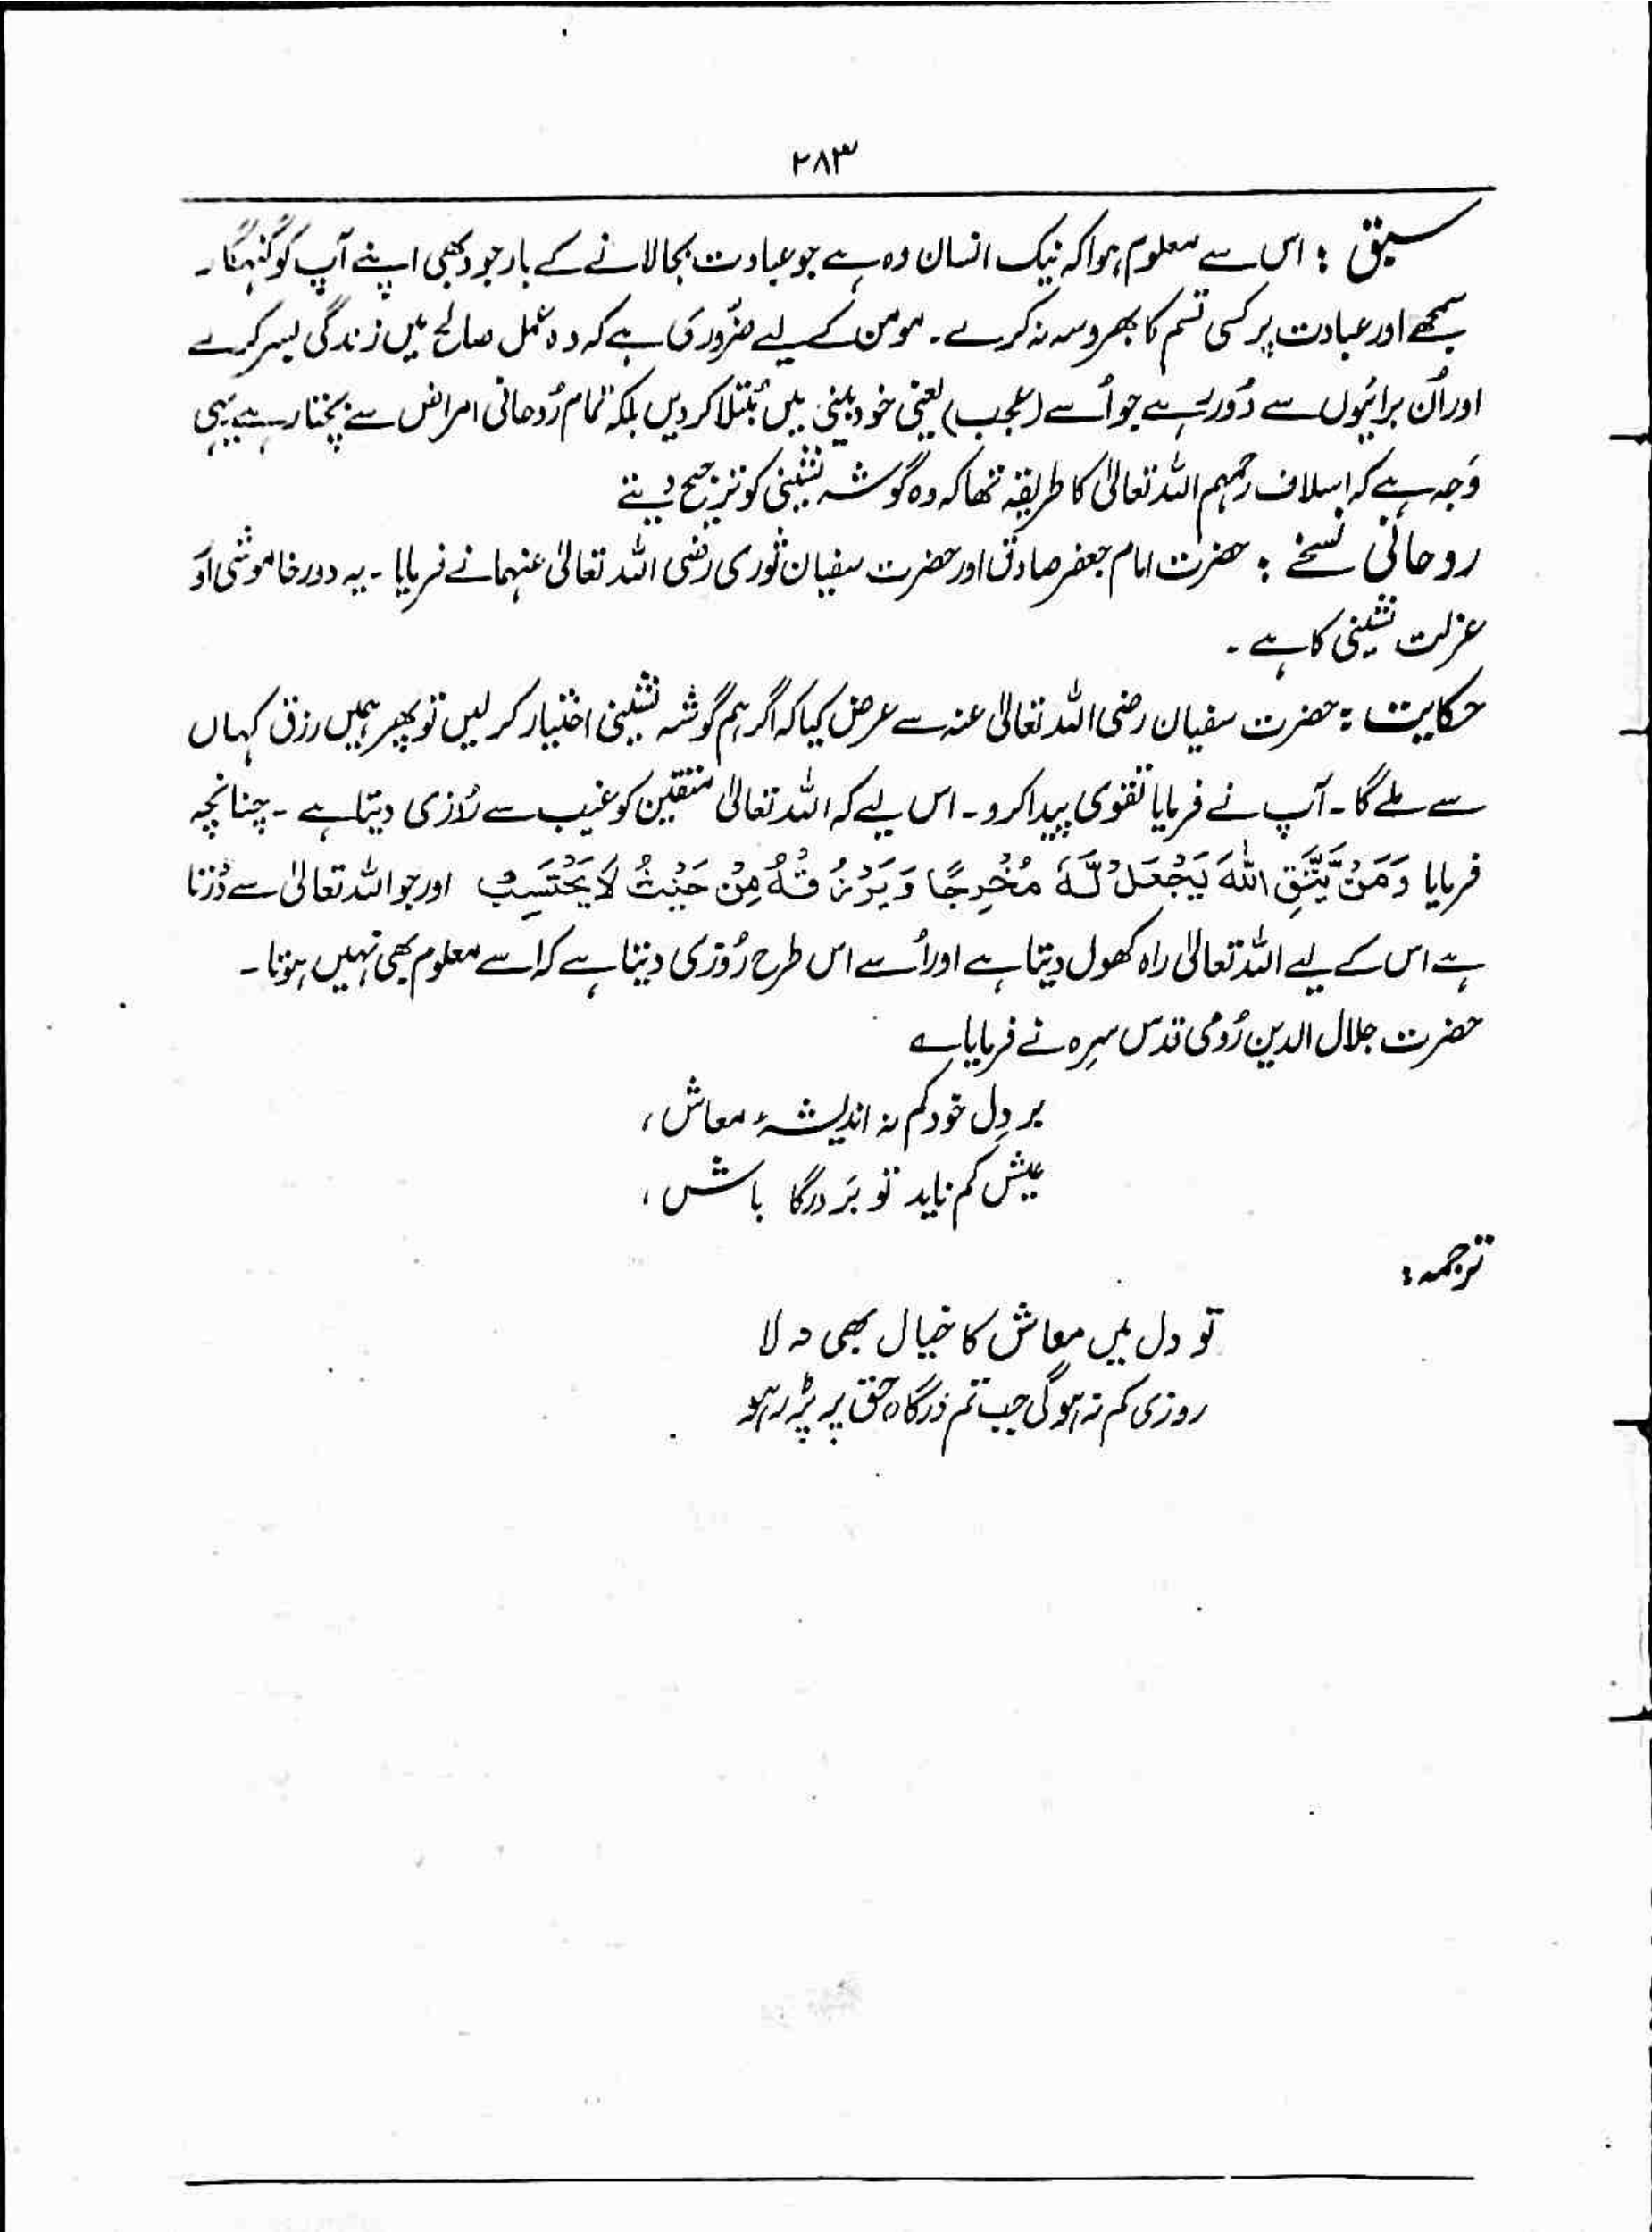 ۲۸۳
سبق : اس سے معلوم ہوا کہ نیک انسان وہ ہے جو عبادت بجا لانے کے باوجود بھی اپنے آپ کو گنہگار
سمجھے اور عبادت پر کسی قسم کا بھروسہ نہ کرے۔ مومن کے لیے ضروری ہے کہ وہ عمل صالح میں زندگی بسر کرے
اور اُن برائیوں سے دُور رہے جو اُسے (عُجب) یعنی خود بینی میں مُبتلا کر دیں بلکہ تمام رُوحانی امراض سے بچتا رہے یہی
وَجہ ہے کہ اسلاف رحمہم اللہ تعالیٰ کا طریقہ تھا کہ وہ گوشہ نشینی کو ترجیح دیتے
روحانی نسخے : حضرت امام جعفر صادق اور حضرت سفیان ثوری رضی اللہ تعالیٰ عنہما نے فرمایا۔ یہ دور خاموشی اور
عزلت نشینی کا ہے۔
حکایت : حضرت سفیان رضی اللہ تعالیٰ عنہ سے عرض کیا کہ اگر ہم گوشہ نشینی اختیار کر لیں تو پھر ہمیں رزق کہاں
سے ملے گا۔ آپ نے فرمایا تقوی پیدا کرو۔ اس لیے کہ اللہ تعالیٰ متقین کو غیب سے رُوزی دیتا ہے۔ چنانچہ
فرمایا وَمَنْ يَّتَّقِ اللّٰهَ يَجْعَلْ لَّهٗ مَخْرِجًا وَيَرْزُقْهُ مِنْ حَيْثُ لَا يَحْتَسِبُ اور جو اللہ تعالیٰ سے ڈرتا
ہے اس کے لیے اللہ تعالیٰ راہ کھول دیتا ہے اور اُسے اس طرح رُوزی دیتا ہے کہ اسے معلوم بھی نہیں ہوتا۔
حضرت جلال الدین رُومی قدس سرہ نے فرمایا ؎
بر دِل خود کم نہ اندیشۂ معاش،
عیش کم ناید تو بَر درگا باش،
ترجمہ :
تو دل میں معاش کا خیال بھی نہ لا
روزی کم نہ ہوگی جب تم درگاہ حق پر پڑے رہو